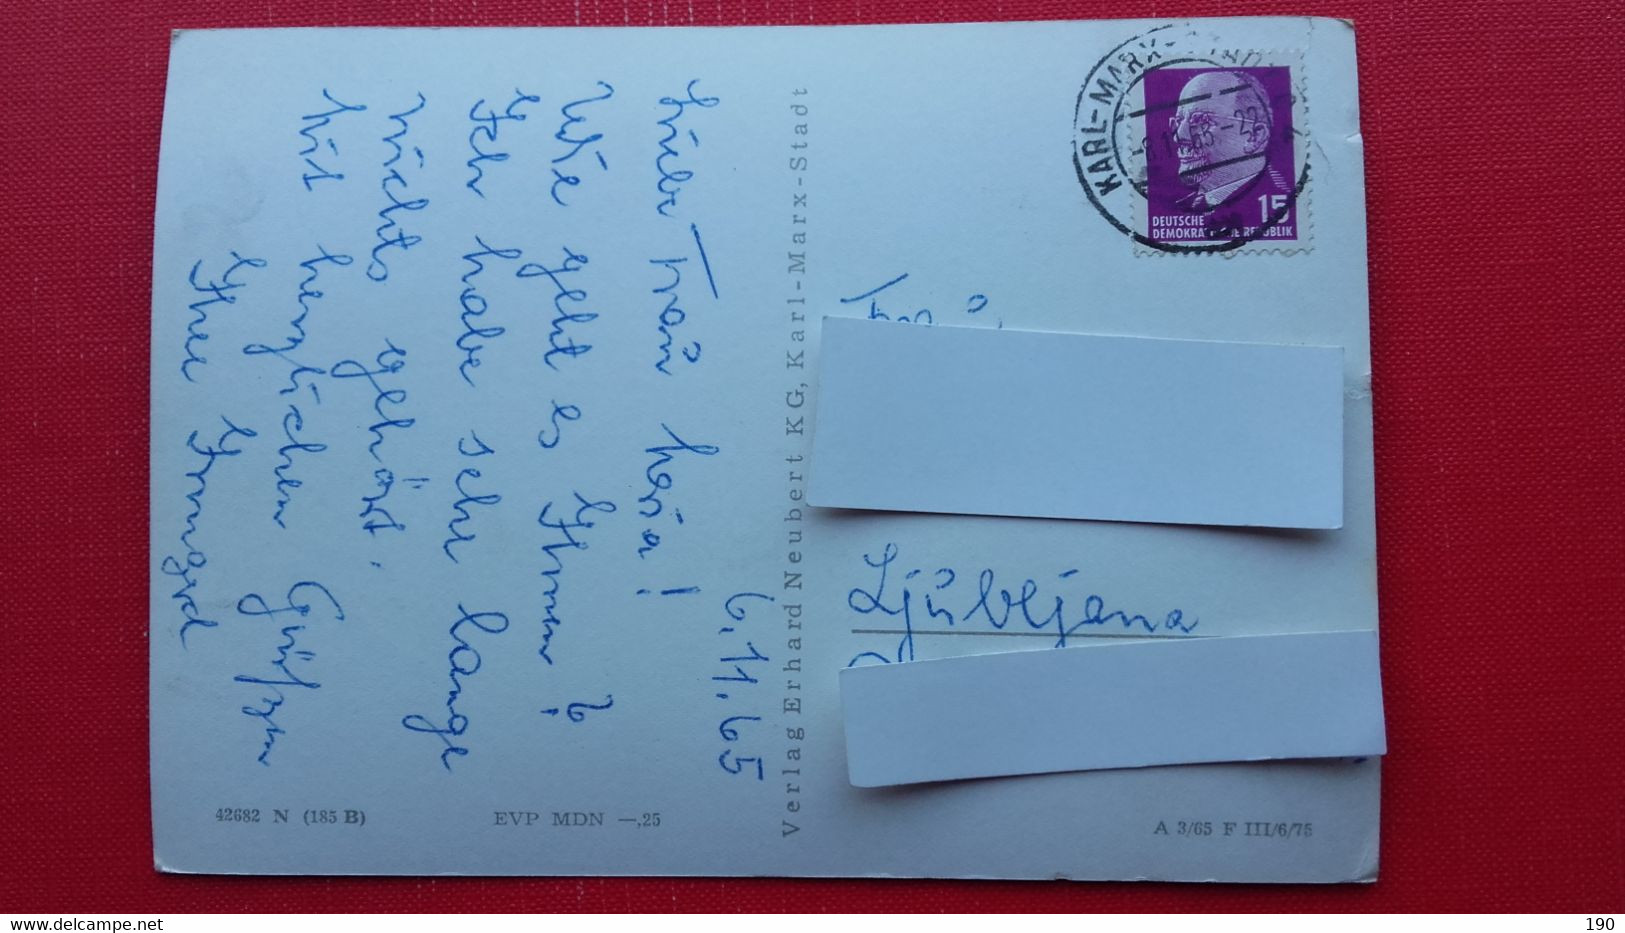 6.11.65
Liebe Frau hesia!
Wie geht es Ihnen?
Ich habe sehr lange
nichts gehört.
Mit herzlichen Grüßen
Ihre Irmgard
42682 N (185 B)
EVP MDN —,25
Verlag Erhard Neubert KG, Karl-Marx-Stadt
KARL-MARX-
15
DEUTSCHE
DEMOKRATISCHE REPUBLIK
Ljubljana
A 3/65 F III/6/75
www.delcampe.net
190